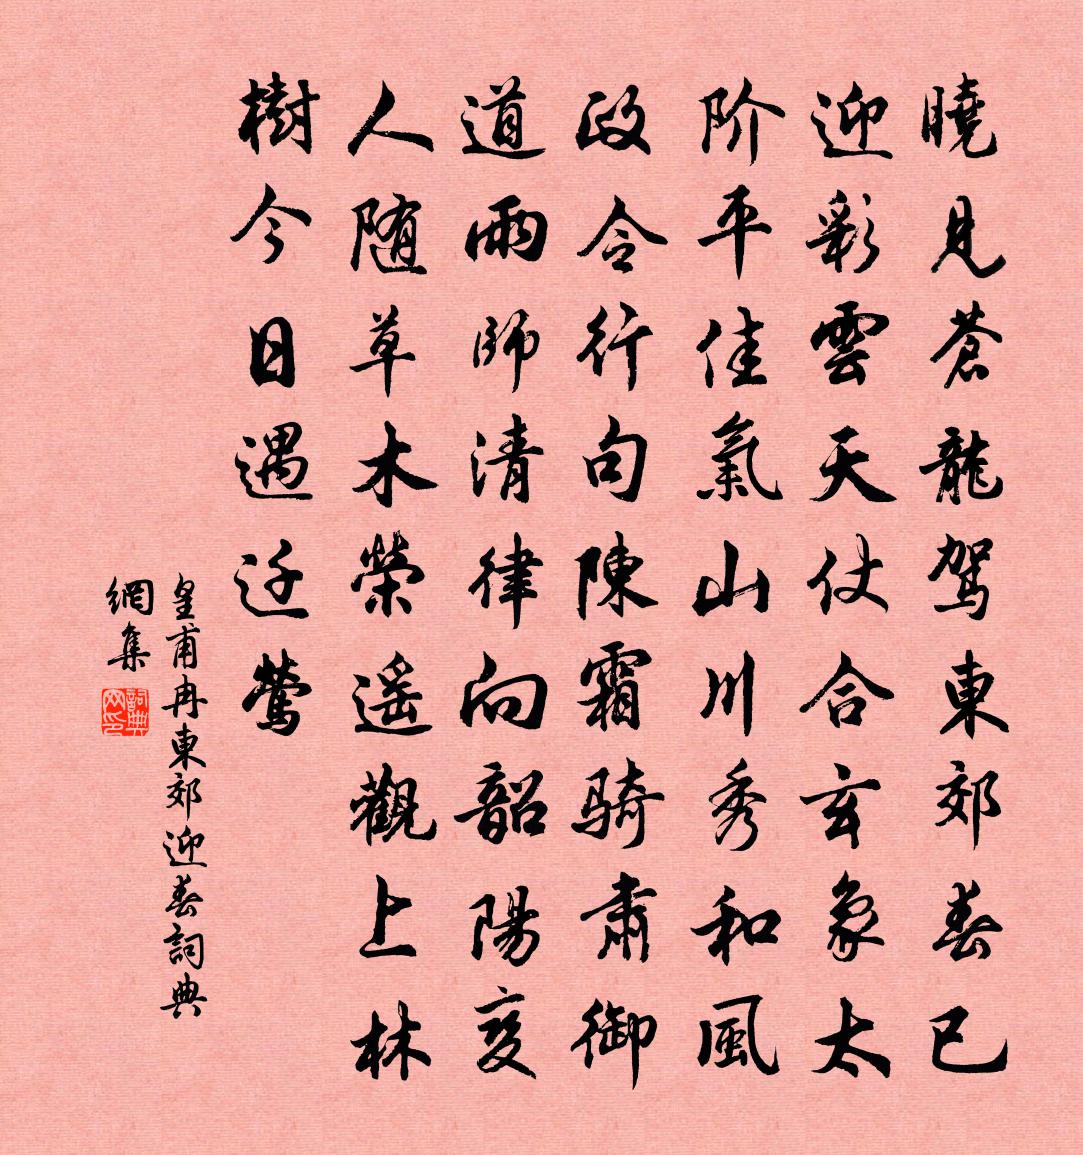 曉見蒼龍驾東郊春已
迎彩雲天仗合玄象太
阶平佳氣山川秀和風
政令行句陳霜骑肅御
道雨師清律向韶陽变
人随草木榮遥觀上林
樹今日遇迁鶯
皇甫冉東郊迎春詞典
網集
詞典
网印